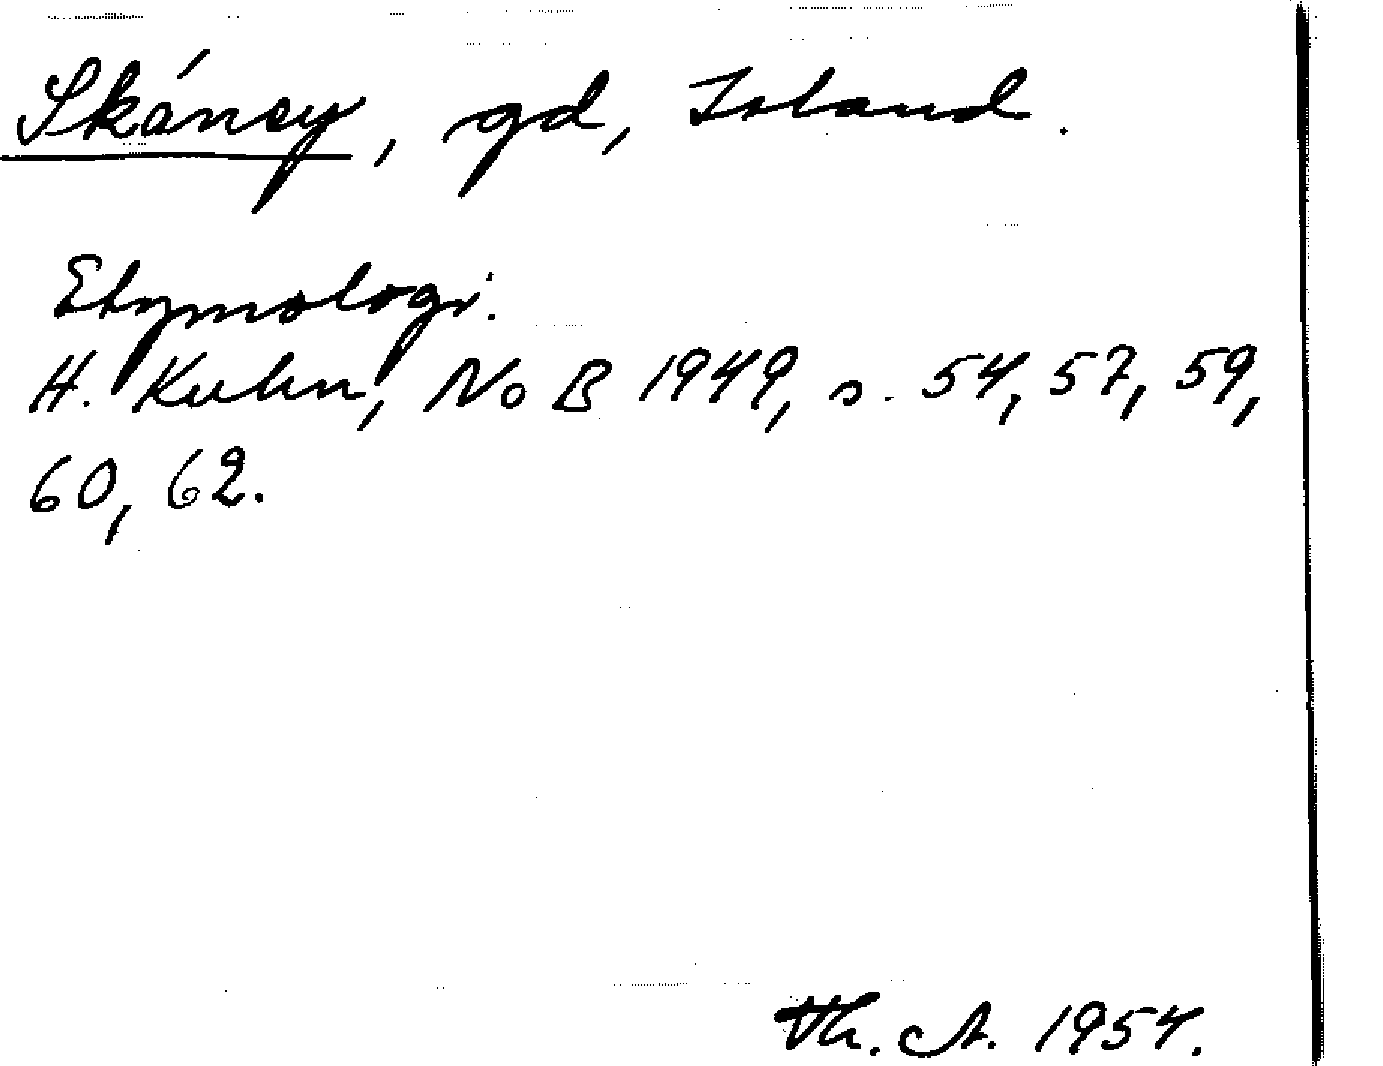 Skáney, gd, Island.
Etymologi.
H. Kuhn, NoB 1949, s. 54, 57, 59,
60, 62.
Th. A. 1954.